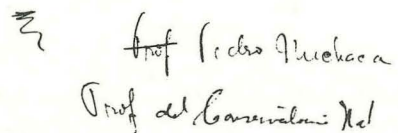 Prof Pedro
Prof del Conservatorio Nal